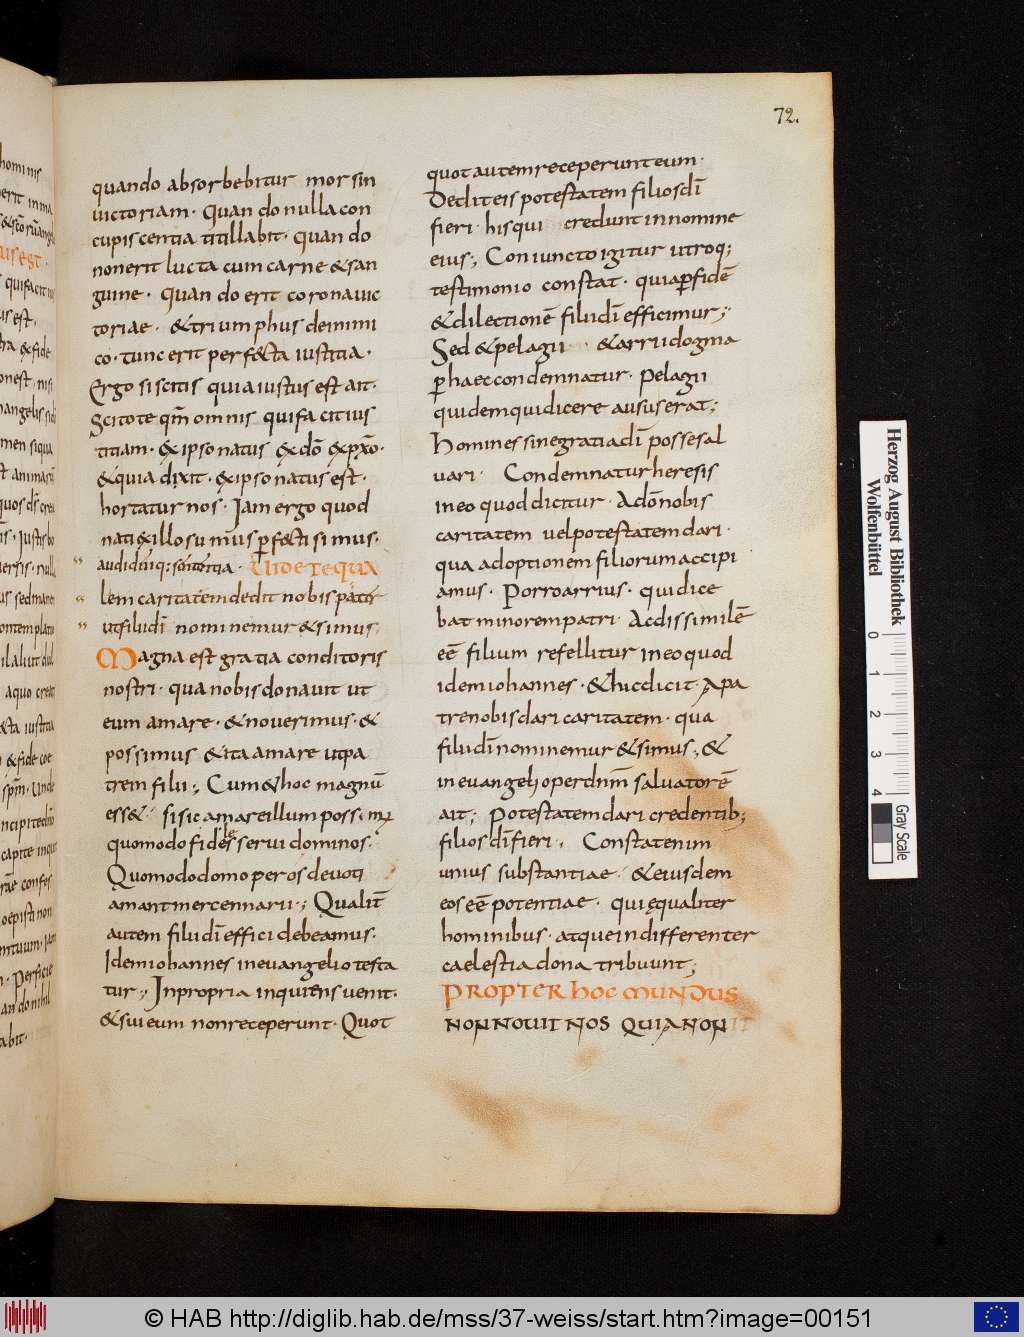 72.
quando absorbebitur mors in
uictoriam· Quando nulla con
cupiscentia titillabit· quando
non erit lucta cum carne & san
guine· quando erit corona uic
toriae· & triumphus de inimi
co· tunc erit perfecta iustitia·
Ergo si scitis quia iustus est ait·
Scitote qm̄ omnis qui facit ius
titiam· ex ipso natus ex dō ex p xp̄o·
& quia dixit· ex ipso natus est·
hortatur nos· Iam ergo quod
nati ex illo sumus ꝑfecti simus·
audi deniq: sententia· Uidete qua
lem caritatem dedit nobis pater
ut filii dī nominemur & simus;
Magna est gratia conditoris
nostri· qua nobis donauit ut
eum amare· & nouerimus· &
possimus & ita amare ut pa
trem filii; Cum & hoc magnū
ess&· si sic amare illum possim;
quomodo fideles serui dominos·
Quomodo domo per os deuoti
amant mercennarii; Qualit̄
autem filii dī effici debeamus·
Idem iohannes in euangelio testa
tur; In propria inquiens uenit·
& sui eum non receperunt· Quot
quot autem receperunt eum·
Dedit eis potestatem filios dī
fieri· his qui credunt in nomine
eius; Coniuncto igitur utroq;
testimonio constat· quia ꝑ fidē
& dilectionē filii dī efficimur;
Sed & pelagii & arrii dogma
ꝑ haec condemnatur· Pelagii
quidem qui dicere ausus erat;
homines sine gratia dī posse sal
uari· Condemnatur heresis
in eo quod dicitur· A dō nobis
caritatem uel potestatem dari·
qua adoptionem filiorum accipi
amus· Porro arrius· qui dice
bat minorem patri· Ac dissimilē
eē filium refellitur in eo quod
idem iohannes· & hic dicit· A pa
tre nobis dari caritatem· qua
filii dī nominemur & simus; &
in euangelio per dn̄m saluatorē
ait; Potestatem dari credentib;
filios dī fieri; Constat enim
unius substantiae· & eiusdem
eos eē potentiae· qui ęqualiter
hominibus· atque indifferenter
caelestia dona tribuunt;
PROPTER hOC MUNDUS
NON NOUIT NOS QUIA NON
Herzog August Bibliothek
Wolfenbüttel
0 1 2 3 4
Gray Scale
© HAB http://diglib.hab.de/mss/37-weiss/start.htm?image=00151